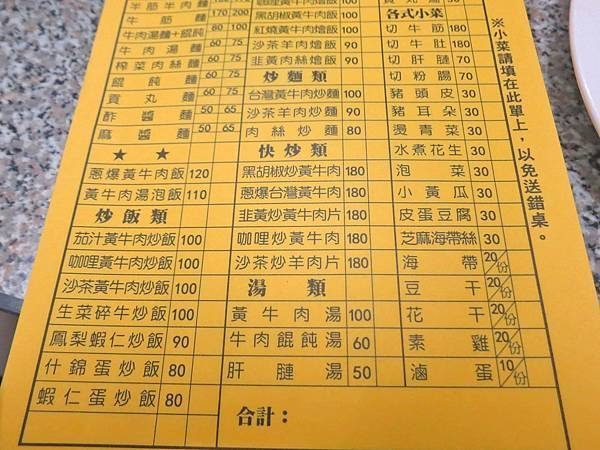 半筋半肉麵
牛筋麵 170 200
牛肉湯麵+餛飩
牛肉湯麵 60 75
榨菜肉絲麵 60 75
餛飩麵 60 75
貢丸麵 60 75
酢醬麵 50 65
麻醬麵 50 65
★ ★
蔥爆黃牛肉飯 120
黃牛肉湯泡飯 110
炒飯類
茄汁黃牛肉炒飯 100
咖哩黃牛肉炒飯 100
沙茶黃牛肉炒飯 100
生菜碎牛炒飯 100
鳳梨蝦仁炒飯 90
什錦蛋炒飯 80
蝦仁蛋炒飯 80
黑胡椒黃牛肉燴飯 100
紅燒黃牛肉燴飯 100
沙茶羊肉燴飯 90
韭黃肉絲燴飯 90
炒麵類
台灣黃牛肉炒麵 100
沙茶羊肉炒麵 90
肉絲炒麵 80
快炒類
黑胡椒炒黃牛肉 180
蔥爆台灣黃牛肉 180
韭黃炒黃牛肉片 180
咖哩炒黃牛肉 180
沙茶炒羊肉片 180
湯類
黃牛肉湯 100
牛肉餛飩湯 60
肝腱湯 50
合計：
各式小菜
切牛筋 180
切牛肚 180
切肝腱 70
切粉腸 70
豬頭皮 30
豬耳朵 30
燙青菜 30
水煮花生 30
泡菜 30
小黃瓜 30
皮蛋豆腐 30
芝麻海帶絲 30
海帶 20/份
豆干
花干 20/份
素雞 20/份
滷蛋 10/份
※小菜請填在此單上，以免送錯桌。